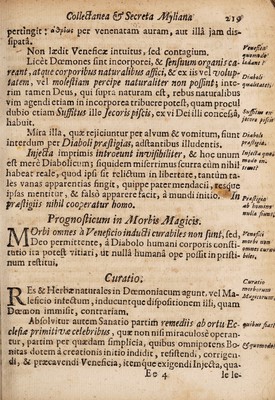 Collectanea & Secreta Mylsiana 219
pertingit: per venenatam auram, aut illâ jam dis-
sipatâ.
Non lædit Veneficæ intuitus, sed contagium.
Licèt Dæmones sint incorporei, & sensuum organis ca-
reant, atque corporibus naturalibus affici, & ex iis vel volup-
tatem, vel molestiam percipe naturaliter non possint; inte-
rim tamen Deus, qui supra naturam est, rebus naturalibus
vim agendi etiam in incorporea tribuere potest, quam procul
dubio etiam Suffitus ille Jecoris piscis, ex vi Dei illi concessâ,
habuit.
Mira illa, quæ rejiciuntur per alvum & vomitum, sunt
interdum per Diaboli præstigias, adstantibus illudentis.
Injecta imprimis introeunt invisibiliter, & hoc unum
est merè Diabolicum; siquidem miserrimus extra eum nihil
habeat reale, quod ipsi sit relictum in libertate, tantùm ta-
les vanas apparentias fingit, quippe pater mendacii, resque
ipsas mentitur, & falsò apparere facit, à mundi initio. In
præstigiis nihil cooperatur homo.
Prognosticum in Morbis Magicis.
MOrbi omnes à Veneficio inducti curabiles non sunt, sed,
Deo permittente, à Diabolo humani corporis consti-
tutio ita potest vitiari, ut nullâ humanâ ope possit in pristi-
num restitui.
Curatio.
REs & Herbæ naturales in Dæmoniacum agunt, vel Ma-
leficio infectum, inducuntque dispositionem illi, quam
Dæmon immisit, contrariam.
Absolvitur autem Sanatio partim remediis ab ortu Ec-
clesiæ primitivæ celebribus, quæ non nisi miraculosè operan-
tur, partim per quædam simplicia, quibus omnipotens Bo-
nitas dotem à creationis initio indidit, resistendi, corrigen-
di, & præcavendi Veneficia, itemque exigendi Injecta, qua-
Ee 4 le le-
Veneficæ
Diaboli
qualitates.
Diaboli
præstigia.
Injecta
Præstigiis
ab homine
nulla fiunt.
Veneficii
morbi non
omnes cu-
Curatio
morborum
Magicorum
quibus fiat?
& quomodo?